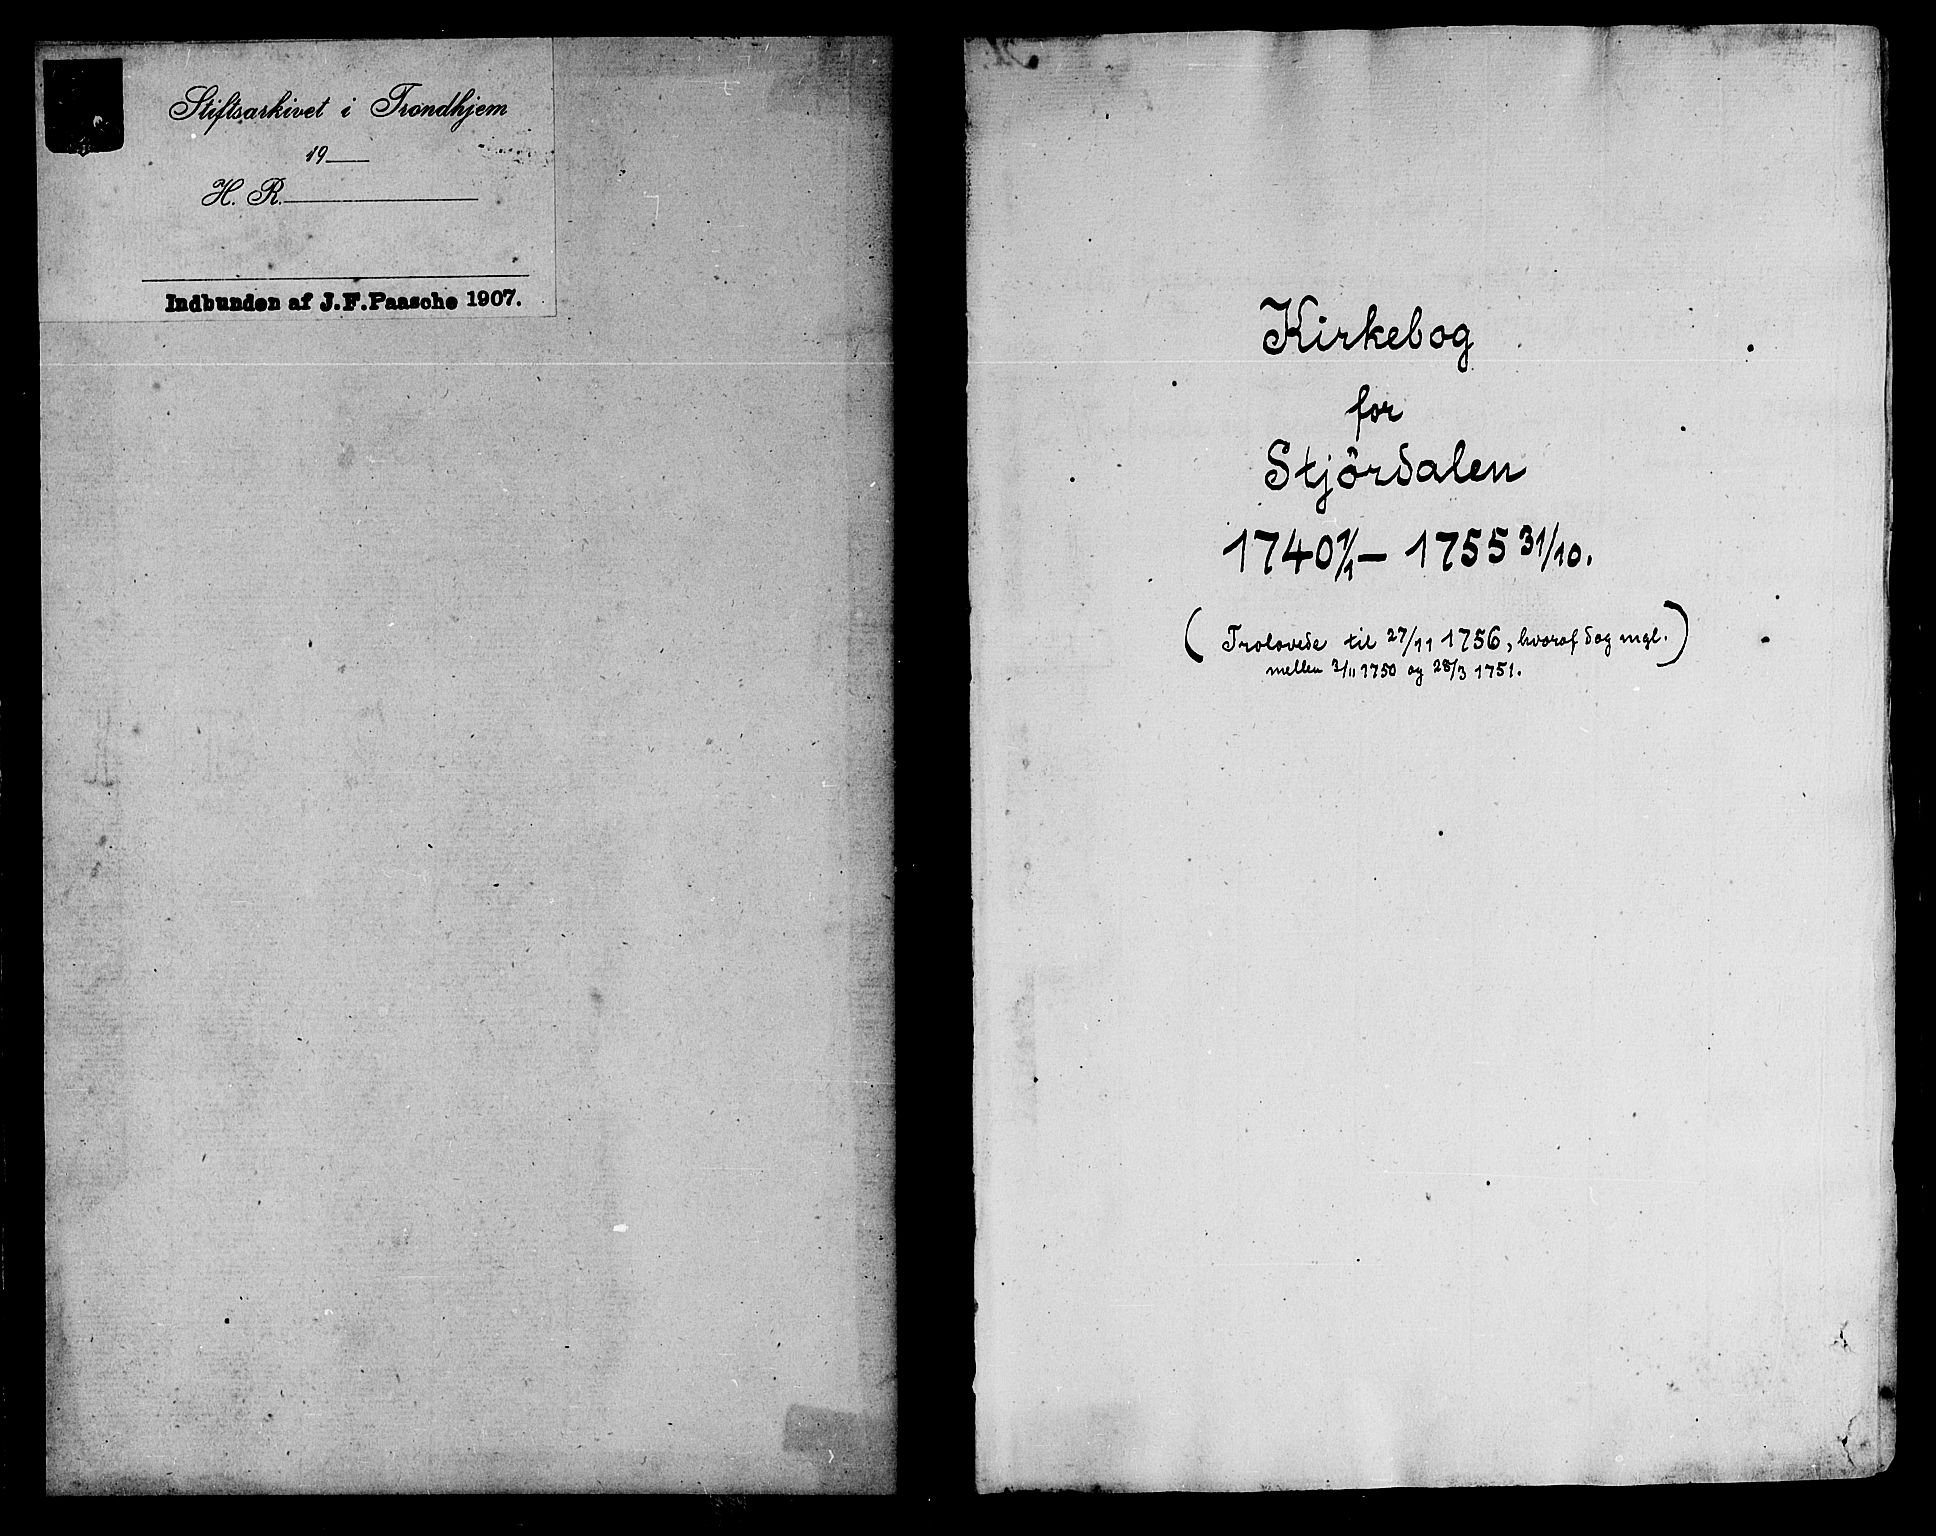 Stiftsarkivet i Trondhjem
19
H. R.
Indbunden af J. F. Paasche 1907.
Kirkebog
for
Stjördalen
1740 1/1 – 1755 31/10.
(Trolovede til 27/11 1756, hvoraf dog mgl.
mellem 2/11 1750 og 28/3 1751.)